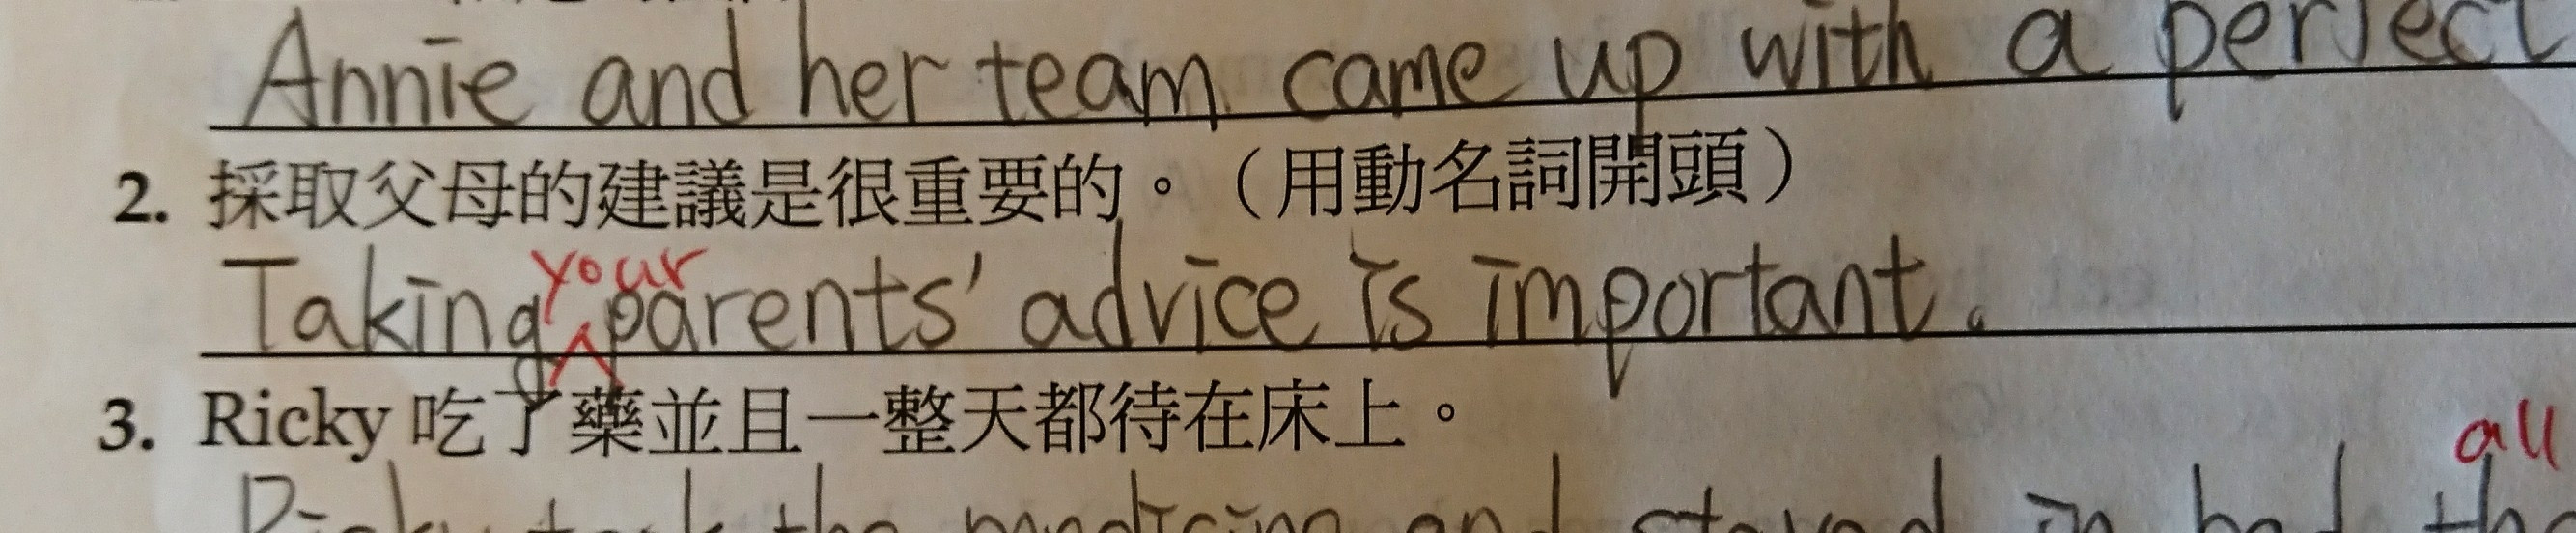 Annie and her team came up with a perfect
2. 採取父母的建議是很重要的。（用動名詞開頭）
your
Taking parents' advice is important.
3. Ricky 吃了藥並且一整天都待在床上。
all
Ricky took the medicine and stayed in bed the